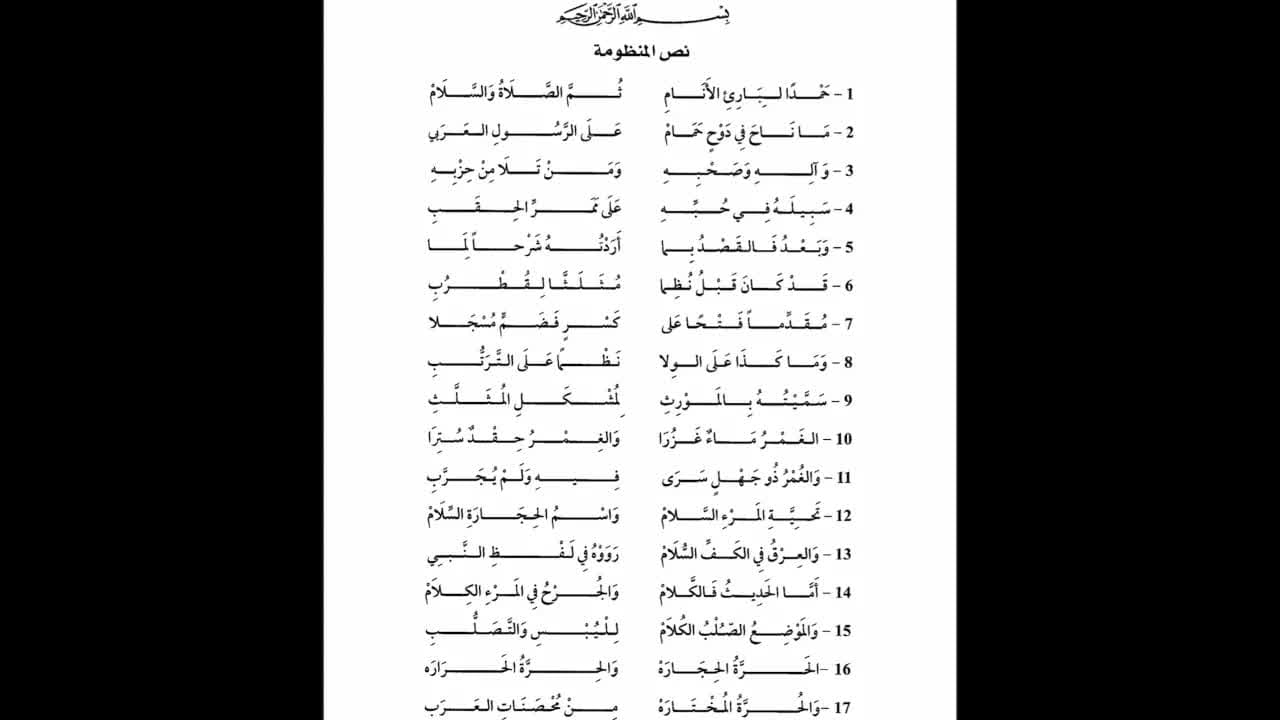 بِسْمِ اللَّهِ الرَّحْمَنِ الرَّحِيمِ
نص المنظومة
1 - حَمْدًا لِبَارِئِ الأَنَامِ ثُمَّ الصَّلَاةُ وَالسَّلَامْ
2 - مَا نَاحَ فِي دَوْحٍ حَمَامْ عَلَى الرَّسُولِ العَرَبي
3 - وَآلِهِ وَصَحْبِهِ وَمَنْ تَلَا مِنْ حِزْبِهِ
4 - سَبِيلَهُ فِي حُبِّهِ عَلَى مَمَرِّ الحِقَبِ
5 - وَبَعْدُ فَالقَصْدُ بِما أَرَدْتُهُ شَرْحاً لِمَا
6 - قَدْ كَانَ قَبْلُ نُظِما مُثَلَّثًا لِقُطْرُبِ
7 - مُقَدِّماً فَتْحًا عَلى كَسْرٍ فَضَمٍّ مُسْجَلا
8 - وَمَا كَذَا عَلَى الوِلا نَظْمًا عَلَى التَّرَتُّبِ
9 - سَمَّيْتُهُ بِالمَوْرِثِ لِمُشْكَلِ المُثَلَّثِ
10 - الغَمْرُ مَاءٌ غَزُرَا وَالغِمْرُ حِقْدٌ سُتِرَا
11 - وَالغُمْرُ ذُو جَهْلٍ سَرَى فِيهِ وَلَمْ يُجَرَّبِ
12 - تَحِيَّةِ المَرْءِ السَّلامْ وَاسْمُ الحِجَارَةِ السِّلَامْ
13 - وَالعِرْقُ فِي الكَفِّ السُّلَامْ رَوَوْهُ فِي لَفْظِ النَّبِي
14 - أَمَّا الحَدِيثُ فَالكَّلامْ وَالجُرْحُ فِي المَرْءِ الكِلَامْ
15 - وَالمَوْضِعُ الصّلْبُ الكُلامْ لِلْيُبْسِ وَالتَّصَلُّبِ
16 -الحَرَّةُ الحِجَارَهْ وَالحِرَّةُ الحَرَارَه
17 -وَالحُرَّةُ المُخْتَارَهْ مِنْ مُحْصَنَاتِ العَرَب